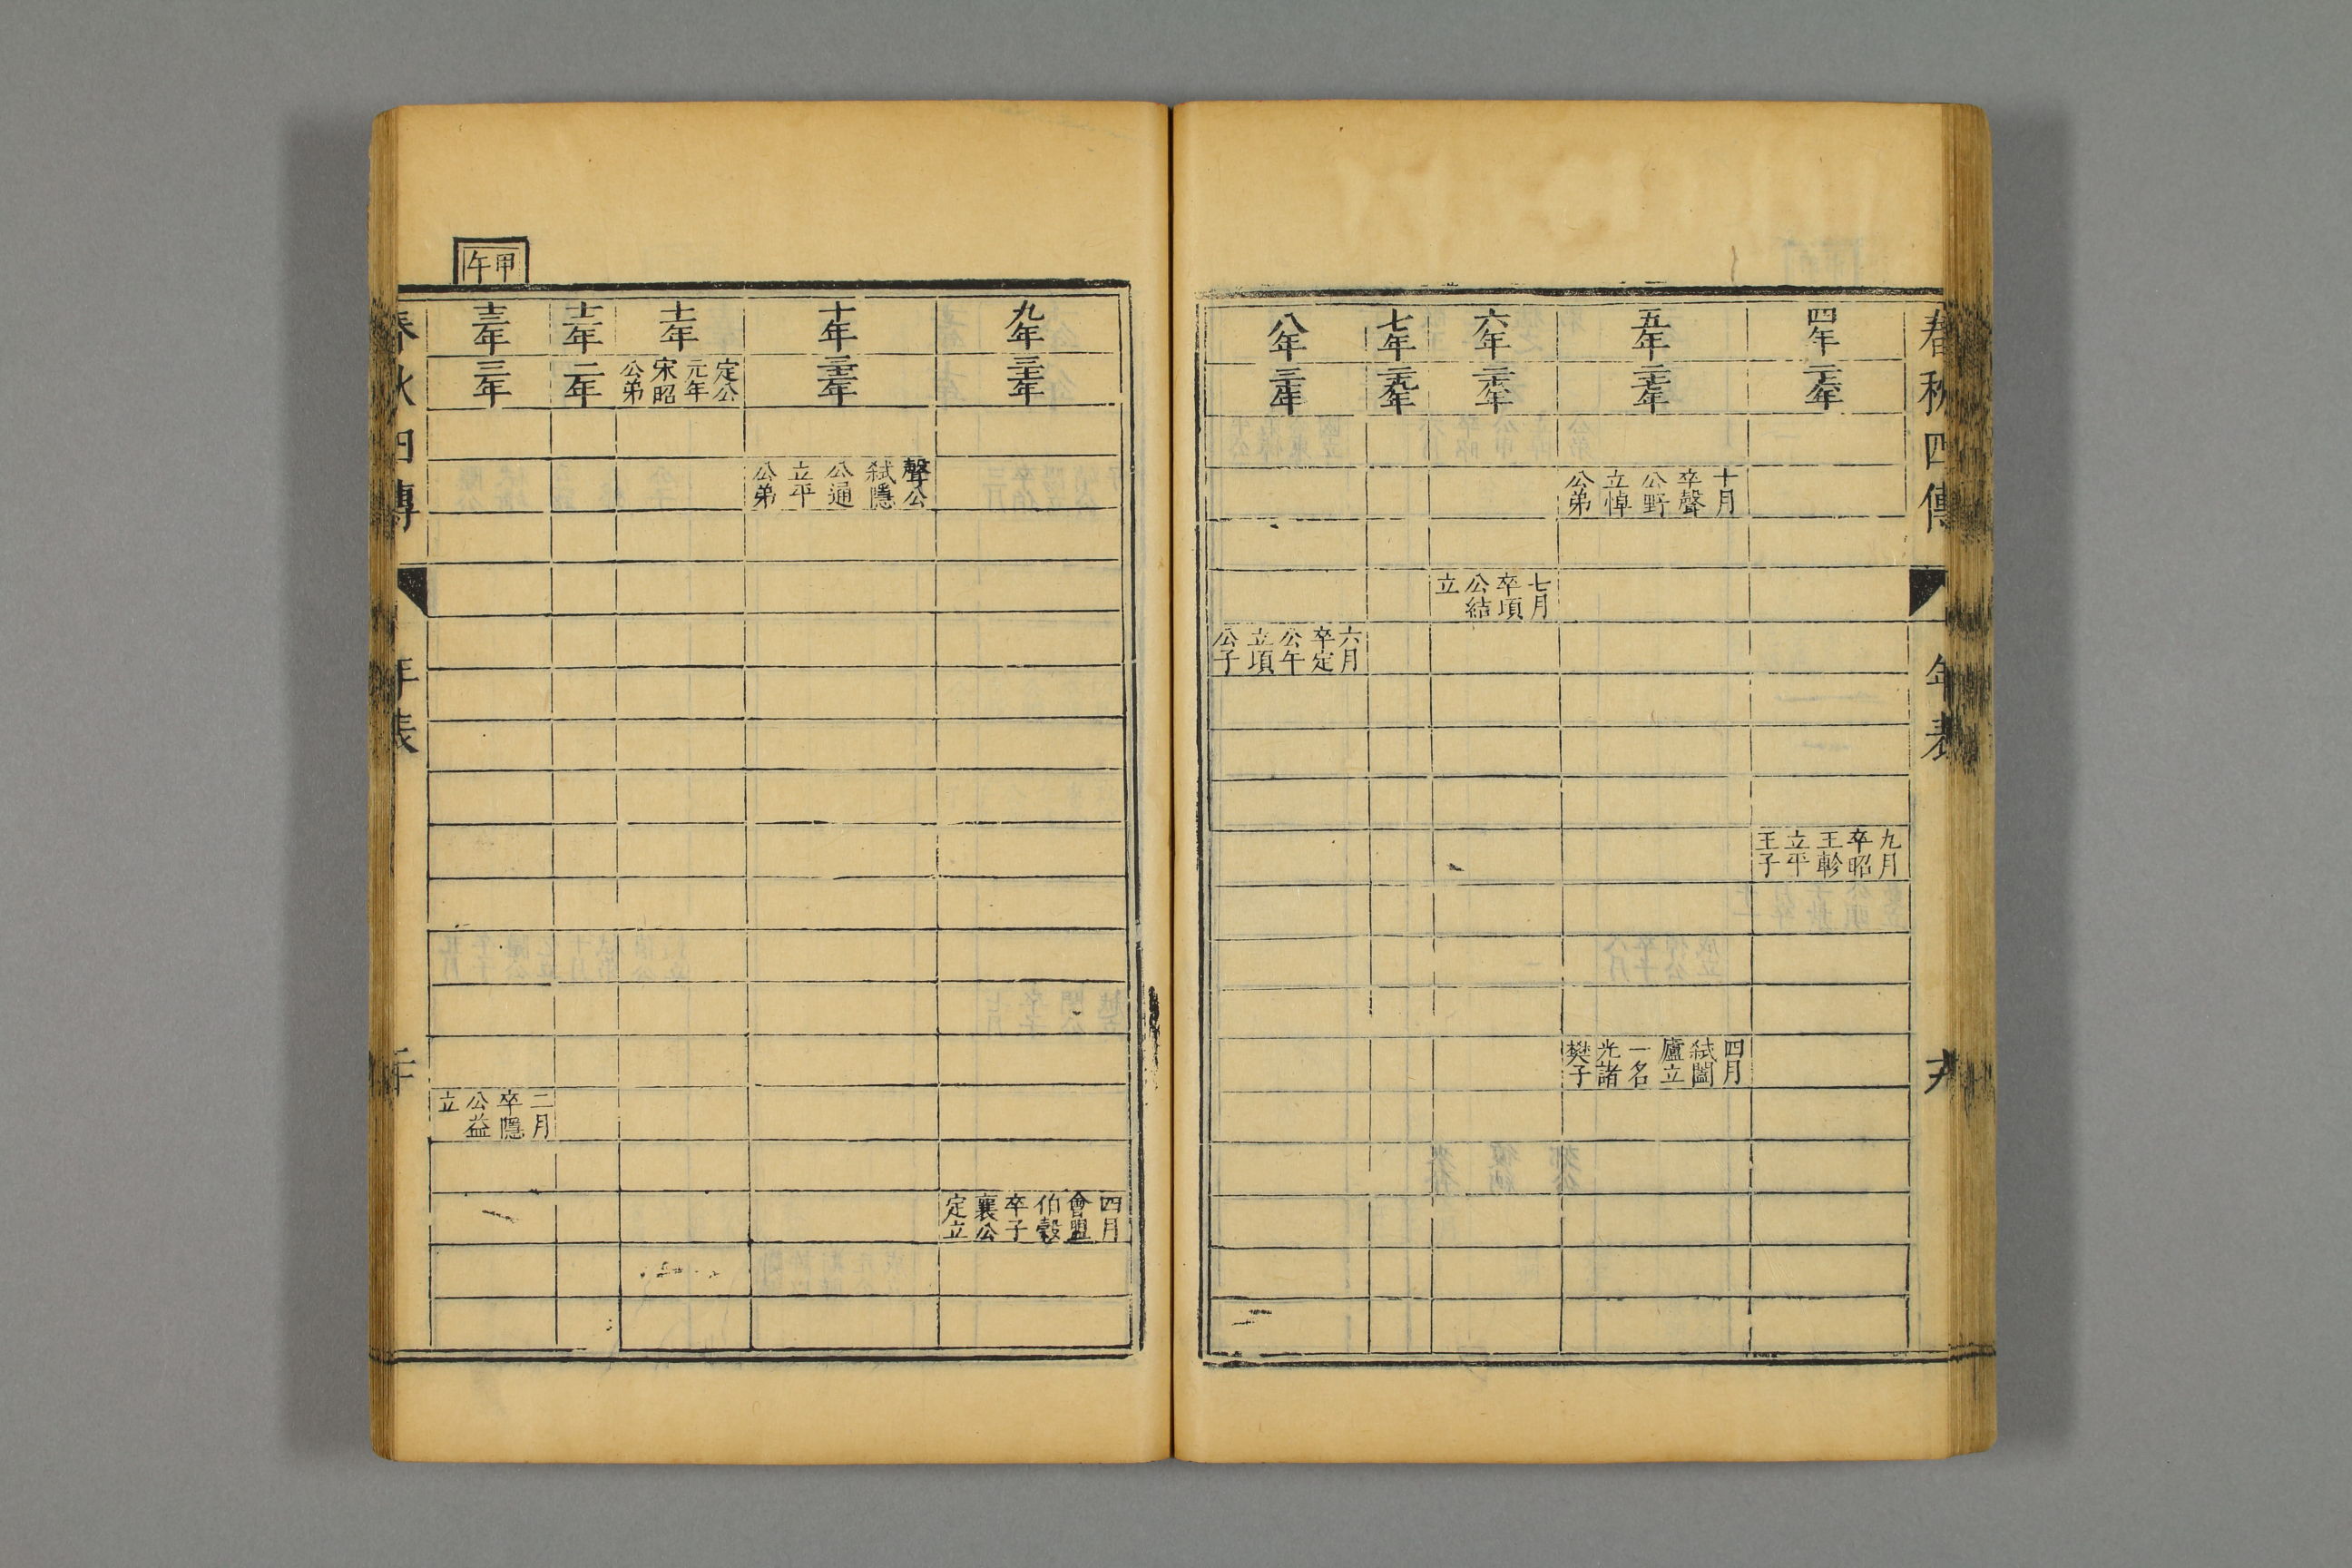 春秋四傳
年表
四年
二十六年
九月
卒昭
王軫
立平
王子
五年
二十七年
十月
卒聲
公野
立悼
公弟
四月
弒闔
廬立
一名
光諸
樊子
六年
二十八年
七月
卒頃
公結
立
七年
二十九年
八年
三十年
六月
卒定
公午
立頃
公子
九年
三十一年
四月
會盟
伯穀
卒子
襄公
定立
十年
三十二年
聲公
弒隱
公通
立平
公弟
十一年
定公
元年
宋昭
公弟
十二年
二年
甲午
十三年
三年
二月
卒隱
公益
立
春秋四傳
年表